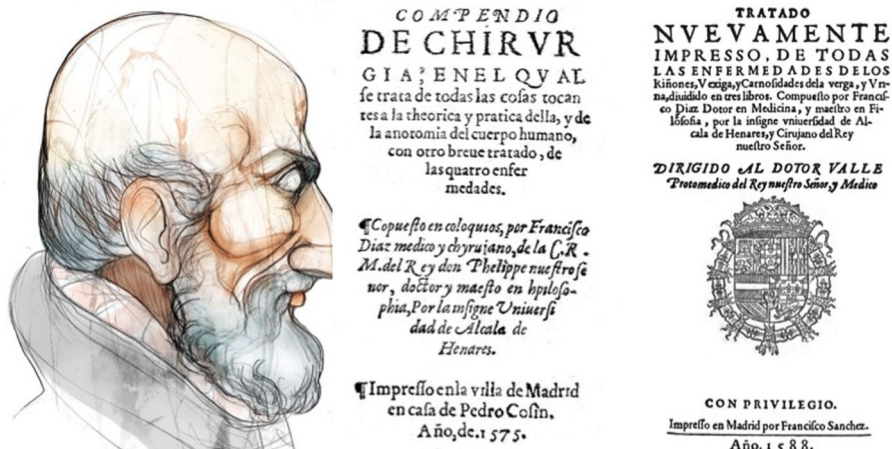 COMPENDIO
DE CHIRVR
GIA; ENEL QVAL
se trata de todas las cosas tocan
tes a la theorica y pratica della, y de
la anotomia del cuerpo humano,
con otro breue tratado, de
las quatro enfer
medades.
¶Copuesto en coloquios, por Francisco
Diaz medico y chyrujano, de la C. R.
M. del Rey don Phelippe nuestro se
nor, doctor y maesto en hpiloso-
phia, Por la insigne Vniuersi
dad de Alcala de
Henares.
¶Impresso en la villa de Madrid
en casa de Pedro Cosin.
Año, de. 1575.
TRATADO
NVEVAMENTE
IMPRESSO, DE TODAS
LAS ENFERMEDADES DELOS
Riñones, Vexiga, y Carnosidades dela verga, y Vri-
na, diuidido en tres libros. Compuesto por Francis-
co Diaz Dotor en Medicina, y maestro en Fi-
losofia, por la insigne vniuersidad de Al-
cala de Henares, y Cirujano del Rey
nuestro Señor.
DIRIGIDO AL DOTOR VALLE
Protomedico del Rey nuestro Señor, y Medico
CON PRIVILEGIO.
Impresso en Madrid por Francisco Sanchez.
Año. 1588.